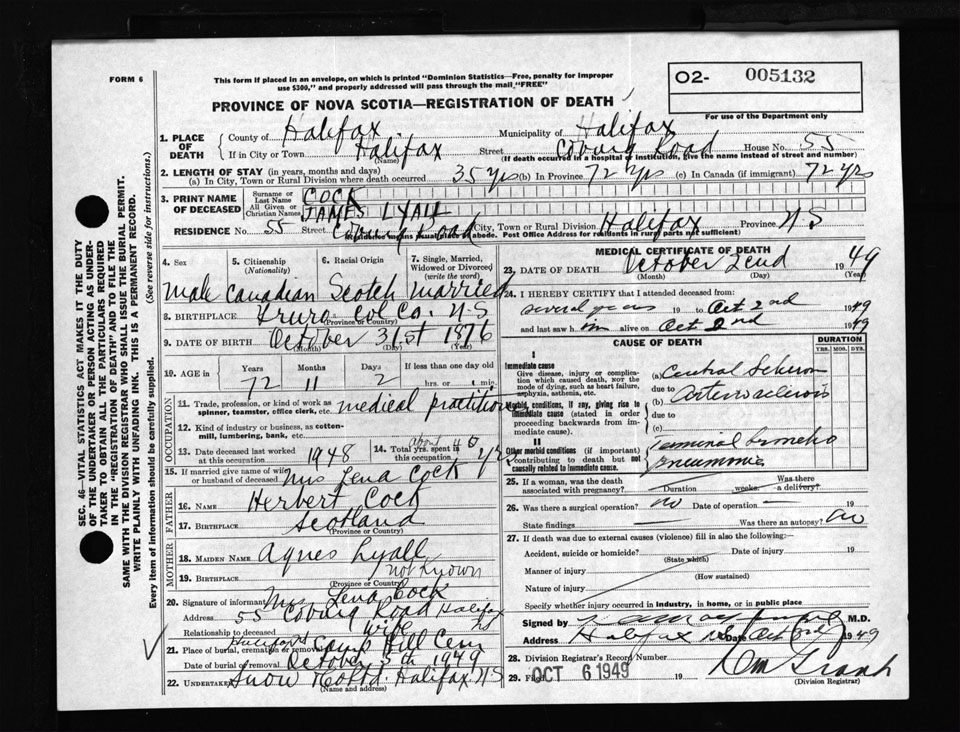 FORM 6
This form if placed in an envelope, on which is printed "Dominion Statistics—Free, penalty for improper
use $300," and properly addressed will pass through the mail "FREE"
O2- 005132
For use of the Department only
PROVINCE OF NOVA SCOTIA—REGISTRATION OF DEATH
1. PLACE OF DEATH
County of Halifax Municipality of Halifax
If in City or Town Halifax Street Coburg Road House No. 55
(Name) (If death occurred in a hospital or institution, give the name instead of street and number)
2. LENGTH OF STAY (in years, months and days)
(a) In City, Town or Rural Division where death occurred 35 yrs (b) In Province 72 yrs (c) In Canada (if immigrant) 72 yrs
3. PRINT NAME OF DECEASED
Surname or Last Name COCK
All Given or Christian Names JAMES LYALL
RESIDENCE No. 55 Street Coburg Road City, Town or Rural Division Halifax Province N S
Residence means usual place of abode. Post Office Address for residents in rural parts not sufficient)
4. Sex
5. Citizenship (Nationality)
6. Racial Origin
7. Single, Married, Widowed or Divorced (write the word)
Male Canadian Scotch Married
8. BIRTHPLACE Truro Col Co. N.S
(Province or Country)
9. DATE OF BIRTH October 31st 1876
(Month) (Day) (Year)
10. AGE in Years Months Days If less than one day old
72 11 2 hrs. or min.
OCCUPATION
11. Trade, profession, or kind of work as spinner, teamster, office clerk, etc. medical practitioner
12. Kind of industry or business, as cotton-mill, lumbering, bank, etc.
13. Date deceased last worked at this occupation 1948
14. Total yrs. spent in this occupation about 40 yrs
15. If married give name of wife or husband of deceased Mrs Lena Cock
FATHER
16. NAME Herbert Cock
17. BIRTHPLACE Scotland
(Province or Country)
MOTHER
18. MAIDEN NAME Agnes Lyall
19. BIRTHPLACE not known
(Province or Country)
20. Signature of informant Mrs Lena Cock
Address 55 Coburg Road Halifax
Relationship to deceased wife NS
21. Place of burial, cremation or removal Camp Hill Cem
Date of burial or removal October 5th 1949
22. Undertaker Snow Co Ltd. Halifax N S
(Name and address)
MEDICAL CERTIFICATE OF DEATH
23. DATE OF DEATH October 2end 1949
(Month) (Day) (Year)
24. I HEREBY CERTIFY that I attended deceased from:
several years 19 to Oct 2nd 1949
and last saw him alive on Oct 2nd 1949
CAUSE OF DEATH
DURATION
YRS. MOS. DYS.
I
Immediate cause
Give disease, injury or complication which caused death, NOT the mode of dying, such as heart failure, asphyxia, asthenia, etc.
(a)
due to
(b) Arteriosclerosis
Morbid conditions, if any, giving rise to immediate cause (stated in order proceeding backwards from immediate cause).
due to
(c)
II
Other morbid conditions (if important) contributing to death but not causally related to immediate cause.
Terminal broncho
pneumonia
25. If a woman, was the death associated with pregnancy? Duration weeks. Was there a delivery?
26. Was there a surgical operation? no Date of operation 19
State findings Was there an autopsy? no
27. If death was due to external causes (violence) fill in also the following:—
Accident, suicide or homicide? Date of injury 19
(State which)
Manner of injury
(How sustained)
Nature of injury
Specify whether injury occurred in industry, in home, or in public place
Signed by M.D.
Address Halifax NS Date Oct 3rd 1949
28. Division Registrar's Record Number
29. Filed OCT 6 1949 19
(Division Registrar)
SEC. 46—VITAL STATISTICS ACT MAKES IT THE DUTY
OF THE UNDERTAKER OR PERSON ACTING AS UNDER-
TAKER TO OBTAIN ALL THE PARTICULARS REQUIRED
IN THE "REGISTRATION OF DEATH" AND TO FILE THE
SAME WITH THE DIVISION REGISTRAR WHO SHALL ISSUE THE BURIAL PERMIT.
WRITE PLAINLY WITH UNFADING INK. THIS IS A PERMANENT RECORD.
Every item of information should be carefully supplied. (See reverse side for instructions.)